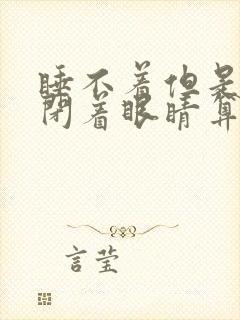 睡不着但是
闭着眼睛算
言莹